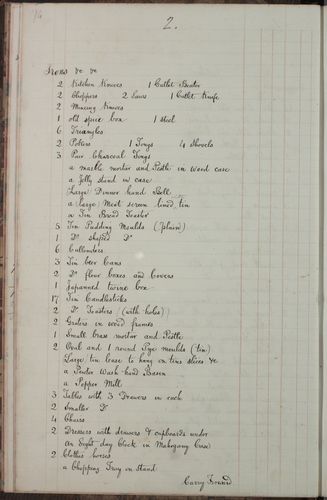 2.
Irons &c &c
2 Kitchen Knives 1 Cutlet Beater
2 Choppers 2 Saws 1 Cutlet Knife
2 Mincing Knives
1 old spice box 1 steel
6 Triangles
2 Pokers 1 Tongs 4 Shovels
3 Pair Charcoal Tongs
a marble mortar and Pestle in wood case
a Jelly stand in case
Large Dinner hand Bell
a (large) Meat screen lined tin
a Tin Bread Toaster
8 Tin Pudding Moulds (plain)
1 Do shaped Do
6 Cullenders
3 Tin beer Cans
2 Do flour boxes and Covers
1 Japanned twine box
17 Tin Candlesticks
2 Do Toasters (with holes)
2 Graters in wood frames
1 Small brass mortar and Pestle
2 Oval and 1 round Pye moulds (tin)
Large tin case to hang on tins slices &c
a Pewter Wash hand Basin
a Pepper Mill
3 Tables with 3 Drawers in each
2 Smaller Do
4 Chairs
2 Dressers with drawers & cupboards under
An Eight day Clock in Mahogany Case
2 Clothes horses
a Chopping Tray on Stand
Carry Forward